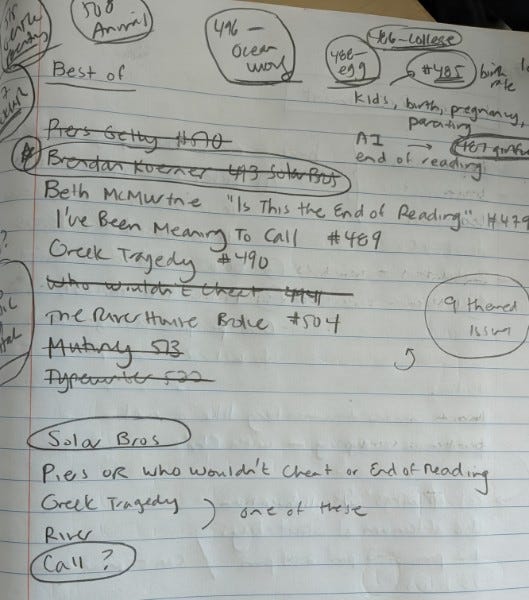 508
Animal
496 –
Ocean
486-college
488-
egg
#485 birth
rate
Kids, birth, pregnancy,
parenting
AI →
end of reading
Best of
Piers Gelly #510
Brendan Koerner 493 Solar Bros
Beth McMurtrie "Is This the End of Reading" #479
I've Been Meaning To Call #489
Greek Tragedy #490
Who Wouldn't Cheat
The River House Broke #504
Mutiny 513
Typewriter 522
9 themed
issues
Solar Bros
Piers OR Who Wouldn't Cheat or End of Reading
Greek Tragedy
one of these
River
Call?